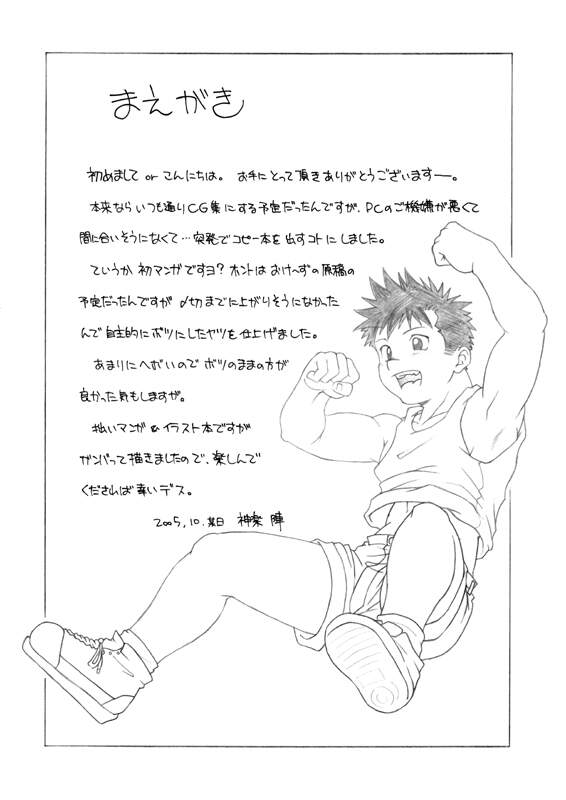 まえがき
初めまして or こんにちは。 お手にとって頂きありがとうございますー。
本来なら いつも通りCG集にする予定だったんですが、PCのご機嫌が悪くて
間に合いそうになくて…突発でコピー本を出すコトにしました。
ていうか 初マンガですヨ? ホントは おけ〜ずの原稿の
予定だったんですが 〆切までに上がりそうになかった
んで自主的にボツにしたヤツを仕上げました。
あまりにへぼいので ボツのままの方が
良かった気もしますが。
拙いマンガ&イラスト本ですが
ガンバって描きましたので、楽しんで
くだされば幸いデス。
2005,10.某日 神楽 陣